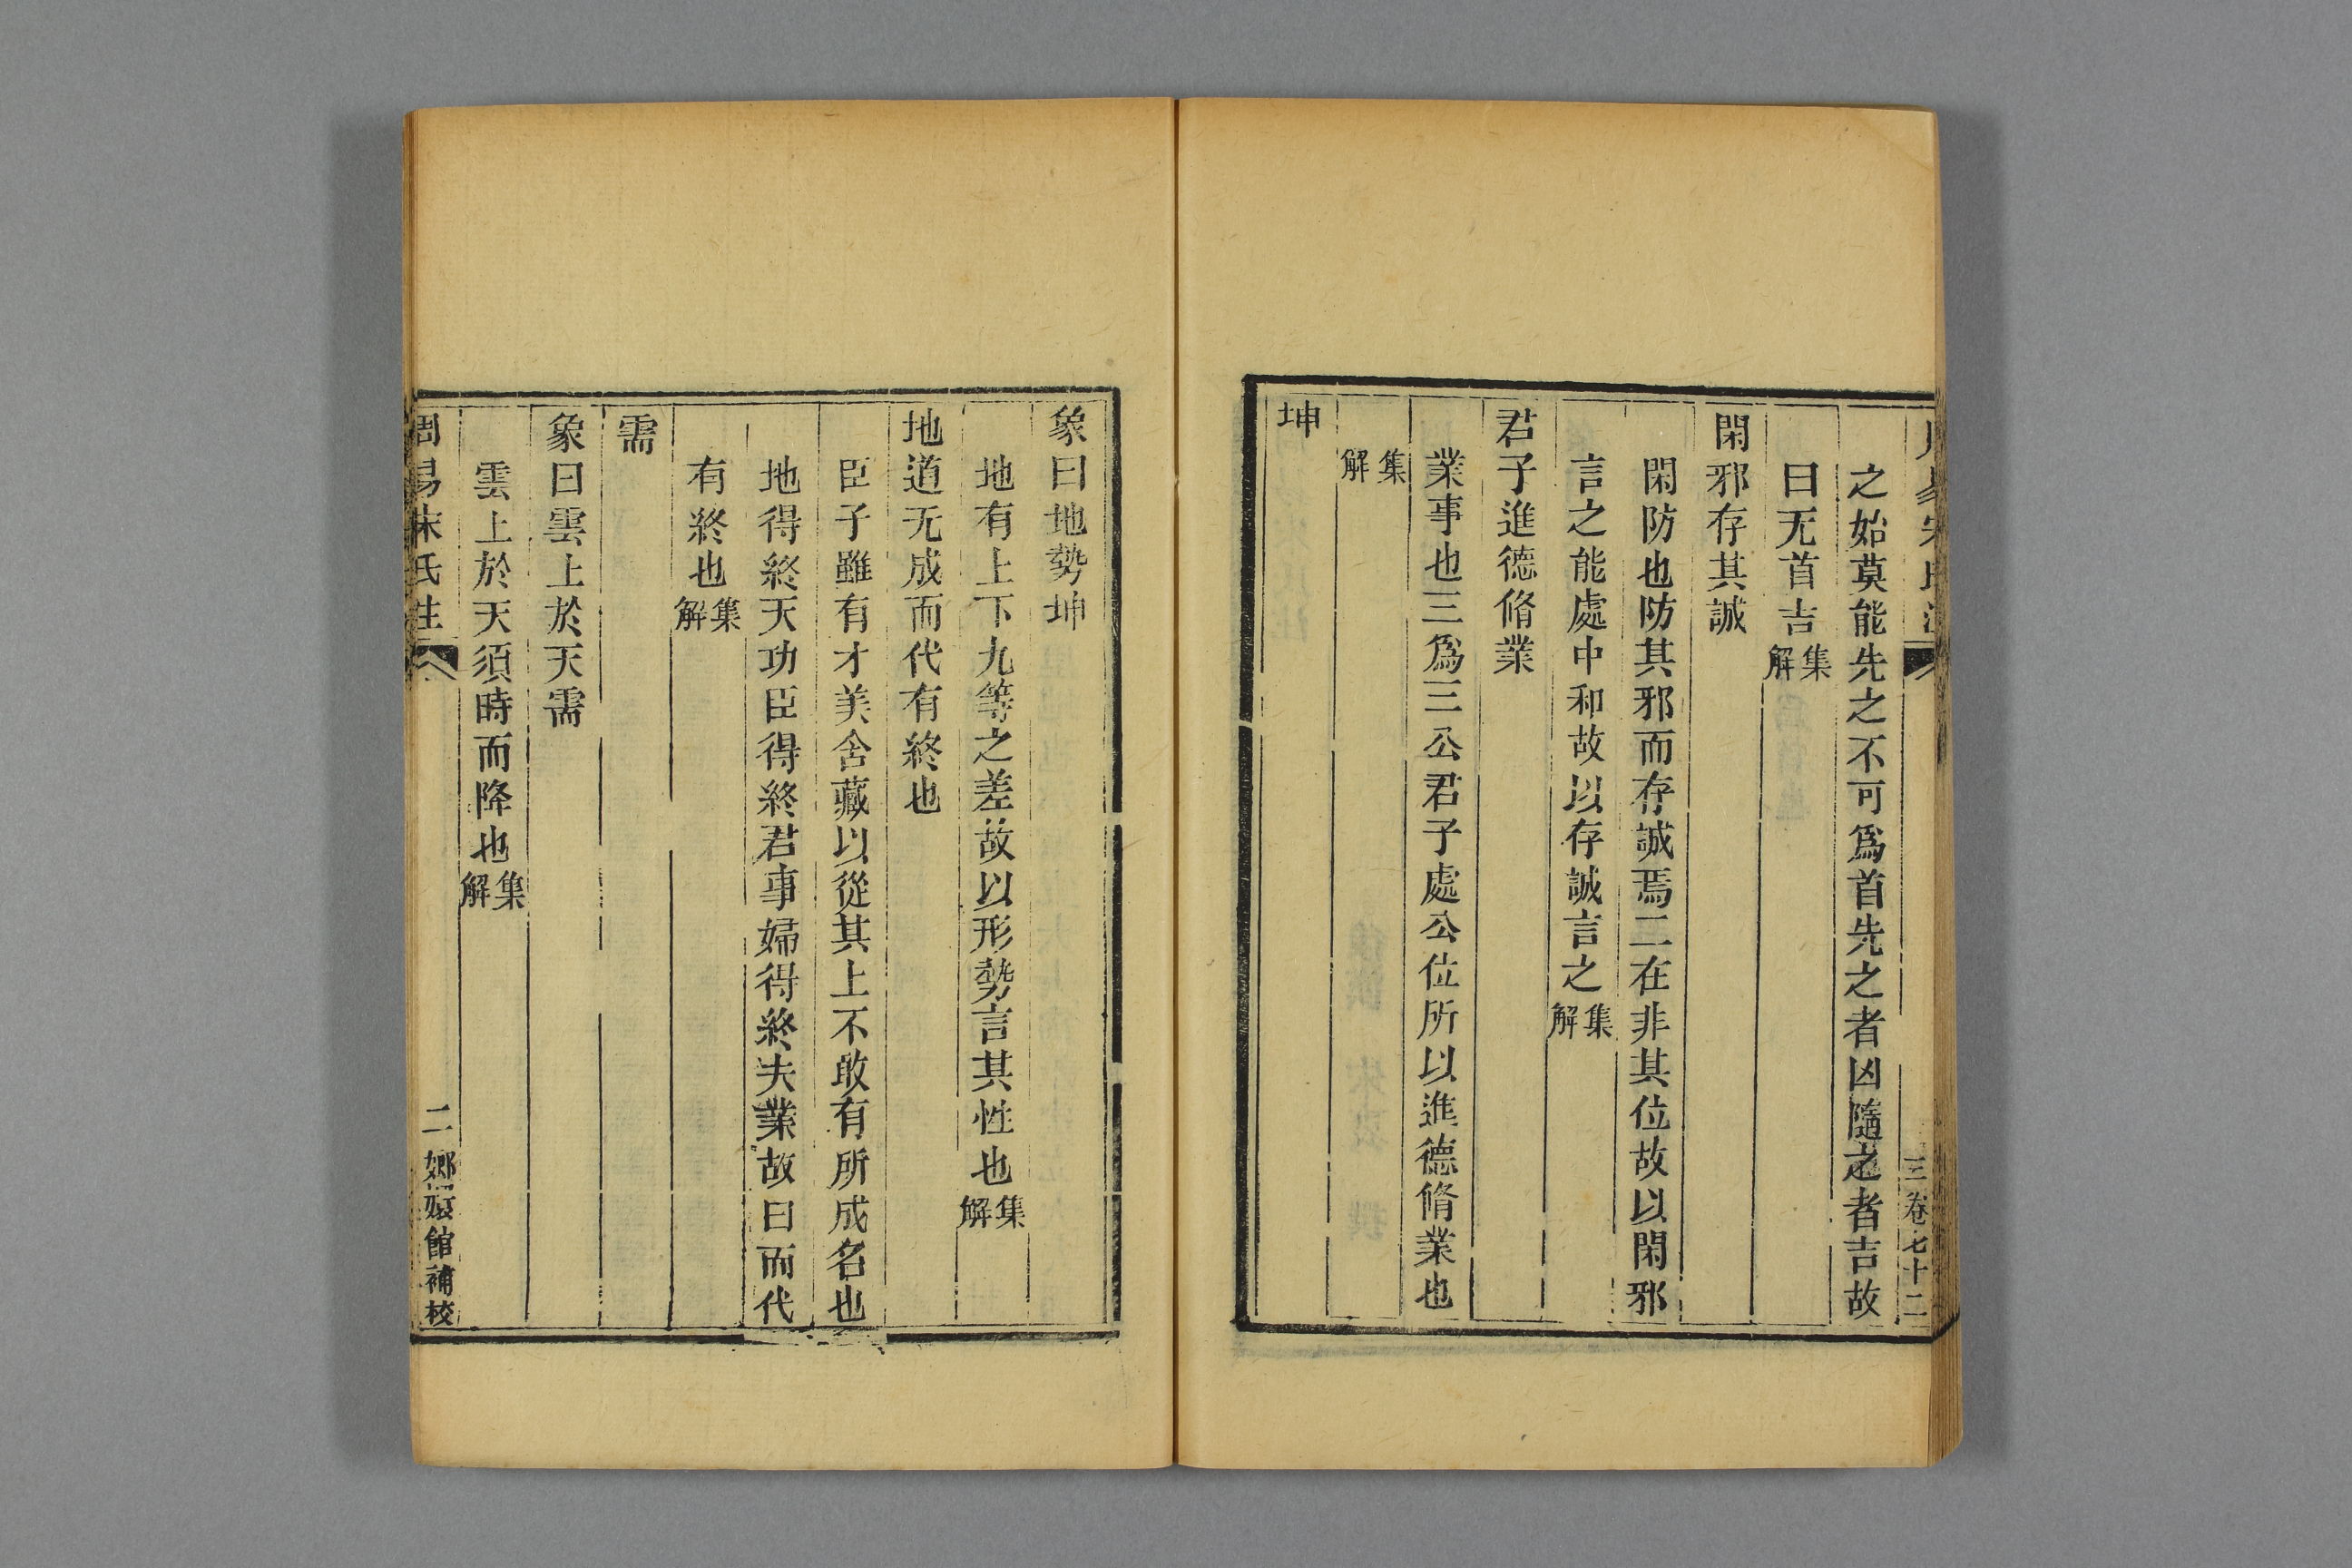 周易宋氏注
三 卷七十二
之始莫能先之不可爲首先之者凶隨之者吉故
曰无首吉集解
閑邪存其誠
閑防也防其邪而存誠焉二在非其位故以閑邪
言之能處中和故以存誠言之集解
君子進德脩業
業事也三爲三公君子處公位所以進德脩業也
集解
坤
象曰地勢坤
地有上下九等之差故以形勢言其性也集解
地道无成而代有終也
臣子雖有才美含藏以從其上不敢有所成名也
地得終天功臣得終君事婦得終夫業故曰而代
有終也集解
需
象曰雲上於天需
雲上於天須時而降也集解
周易宋氏注
二 嫏嬛館補校